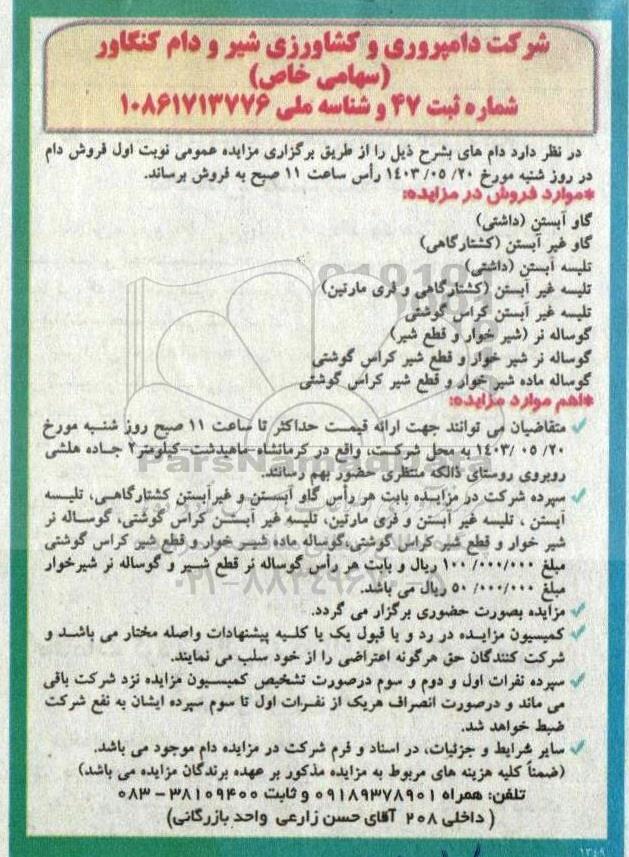 شرکت دامپروری و کشاورزی شیر و دام کنگاور
(سهامی خاص)
شماره ثبت ۴۷ و شناسه ملی ۱۰۸۶۱۷۱۳۷۷۶
در نظر دارد دام های بشرح ذیل را از طریق برگزاری مزایده عمومی نوبت اول فروش دام
در روز شنبه مورخ ۲۰/ ۰۵/ ۱۴۰۳ رأس ساعت ۱۱ صبح به فروش برساند.
*موارد فروش در مزایده:
گاو آبستن (داشتی)
گاو غیر آبستن (کشتارگاهی)
تلیسه آبستن (داشتی)
تلیسه غیر آبستن (کشتارگاهی و فری مارتین)
تلیسه غیر آبستن کراس گوشتی
گوساله نر (شیر خوار و قطع شیر)
گوساله نر شیر خوار و قطع شیر کراس گوشتی
گوساله ماده شیر خوار و قطع شیر کراس گوشتی
*اهم موارد مزایده:
✓ متقاضیان می توانند جهت ارائه قیمت حداکثر تا ساعت ۱۱ صبح روز شنبه مورخ
۲۰/ ۰۵ /۱۴۰۳ به محل شرکت، واقع در کرمانشاه-ماهیدشت-کیلومتر۲ جاده هلشی
روبروی روستای ذالکه منتظری حضور بهم رسانند.
✓ سپرده شرکت در مزایده بابت هر رأس گاو آبستن و غیرآبستن کشتارگاهی، تلیسه
آبستن ، تلیسه غیر آبستن و فری مارتین، تلیسه غیر آبستن کراس گوشتی، گوساله نر
شیر خوار و قطع شیر کراس گوشتی،گوساله ماده شیر خوار و قطع شیر کراس گوشتی
مبلغ ۱۰۰/۰۰۰/۰۰۰ ریال و بابت هر رأس گوساله نر قطع شیر و گوساله نر شیرخوار
مبلغ ۵۰/۰۰۰/۰۰۰ ریال می باشد.
✓ مزایده بصورت حضوری برگزار می گردد.
✓ کمیسیون مزایده در رد و یا قبول یک یا کلیه پیشنهادات واصله مختار می باشد و
شرکت کنندگان حق هرگونه اعتراضی را از خود سلب می نمایند.
✓ سپرده نفرات اول و دوم و سوم درصورت تشخیص کمیسیون مزایده نزد شرکت باقی
می ماند و درصورت انصراف هریک از نفرات اول تا سوم سپرده ایشان به نفع شرکت
ضبط خواهد شد.
✓ سایر شرایط و جزئیات، در اسناد و فرم شرکت در مزایده دام موجود می باشد.
(ضمناً کلیه هزینه های مربوط به مزایده مذکور بر عهده برندگان مزایده می باشد)
تلفن: همراه ۰۹۱۸۹۳۷۸۹۰۱ و ثابت ۳۸۱۰۹۴۰۰ - ۰۸۳
( داخلی ۲۰۸ آقای حسن زارعی واحد بازرگانی)
ParsNamadData
۰۲۱-۸۸۳۴۹۶۷۰-۵